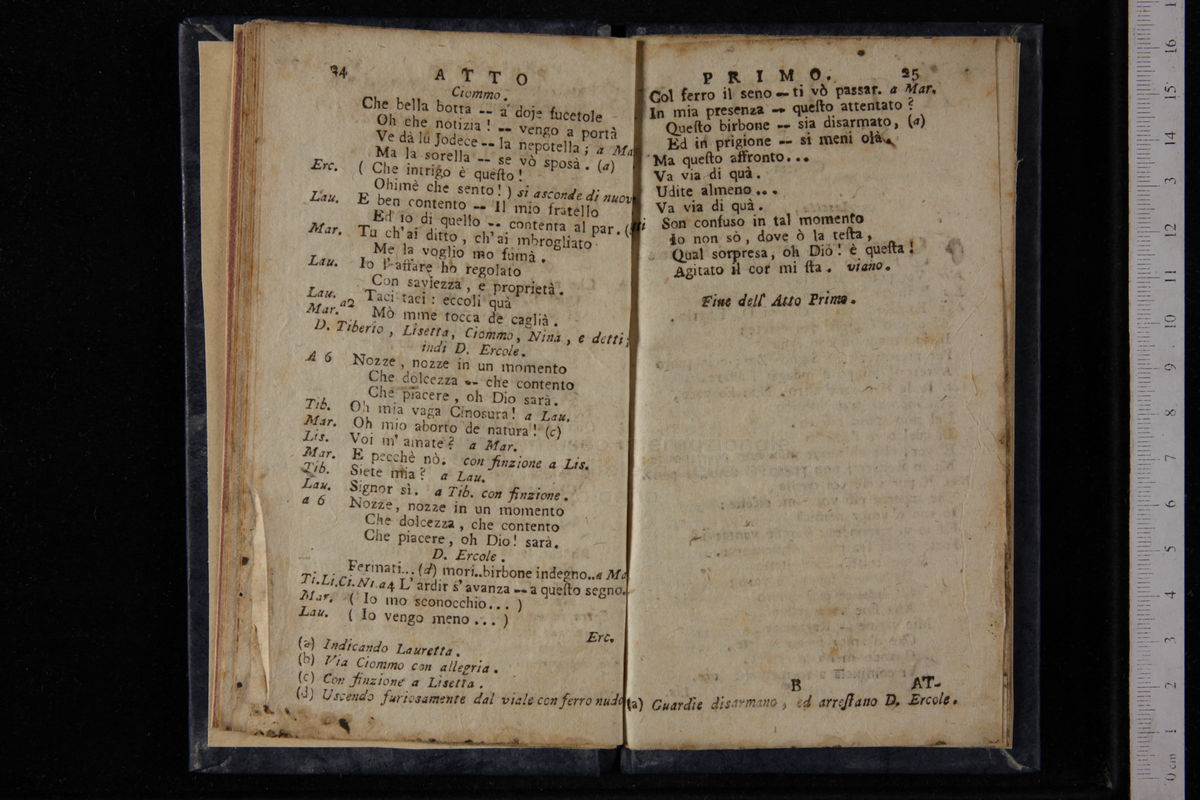 24 ATTO
Ciommo.
Che bella botta -- a doje fucetole
Oh che notizia! -- vengo a portà
Ve dà lu Jodece -- la nepotella; a Ma
Ma la sorella -- se vò sposà. (a)
Erc. ( Che intrigo è queſto!
Ohimè che sento! ) si asconde di nuov
Lau. E ben contento -- Il mio fratello
Ed io di quello -- contenta al par.
Mar. Tu ch'ai ditto, ch'ai mbrogliato
Me la voglio mo fumà.
Lau. Io l'affare ho regolato
Con saviezza, e proprietà.
Lau. Taci taci: eccoli quà
Mar. a2 Mò mme tocca de caglià.
D. Tiberio, Lisetta, Ciommo, Nina, e detti;
indi D. Ercole.
A 6 Nozze, nozze in un momento
Che dolcezza -- che contento
Che piacere, oh Dio sarà.
Tib. Oh mia vaga Cinosura! a Lau.
Mar. Oh mio aborto de natura! (c)
Lis. Voi m'amate? a Mar.
Mar. E pecchè nò. con finzione a Lis.
Tib. Siete mia? a Lau.
Lau. Signor sì. a Tib. con finzione.
a 6 Nozze, nozze in un momento
Che dolcezza, che contento
Che piacere, oh Dio! sarà.
D. Ercole.
Fermati... (d) mori..birbone indegno..a Ma
Ti.Li.Ci.Ni.a4 L'ardir s'avanza -- a queſto segno.
Mar. ( Io mo sconocchio... )
Lau. ( Io vengo meno... )
Erc.
(a) Indicando Lauretta.
(b) Via Ciommo con allegria.
(c) Con finzione a Lisetta.
(d) Uscendo furiosamente dal viale con ferro nudo
PRIMO. 25
Col ferro il seno -- ti vò passar. a Mar.
In mia presenza -- queſto attentato?
Queſto birbone -- sia disarmato, (a)
Ed in prigione -- si meni olà.
Ma queſto affronto...
Va via di quà.
Udite almeno...
Va via di quà.
Son confuso in tal momento
Io non sò, dove ò la teſta,
Qual sorpresa, oh Dio! è queſta!
Agitato il cor mi ſta. viano.
Fine dell' Atto Primo.
B AT-
(a) Guardie disarmano, ed arreſtano D. Ercole.